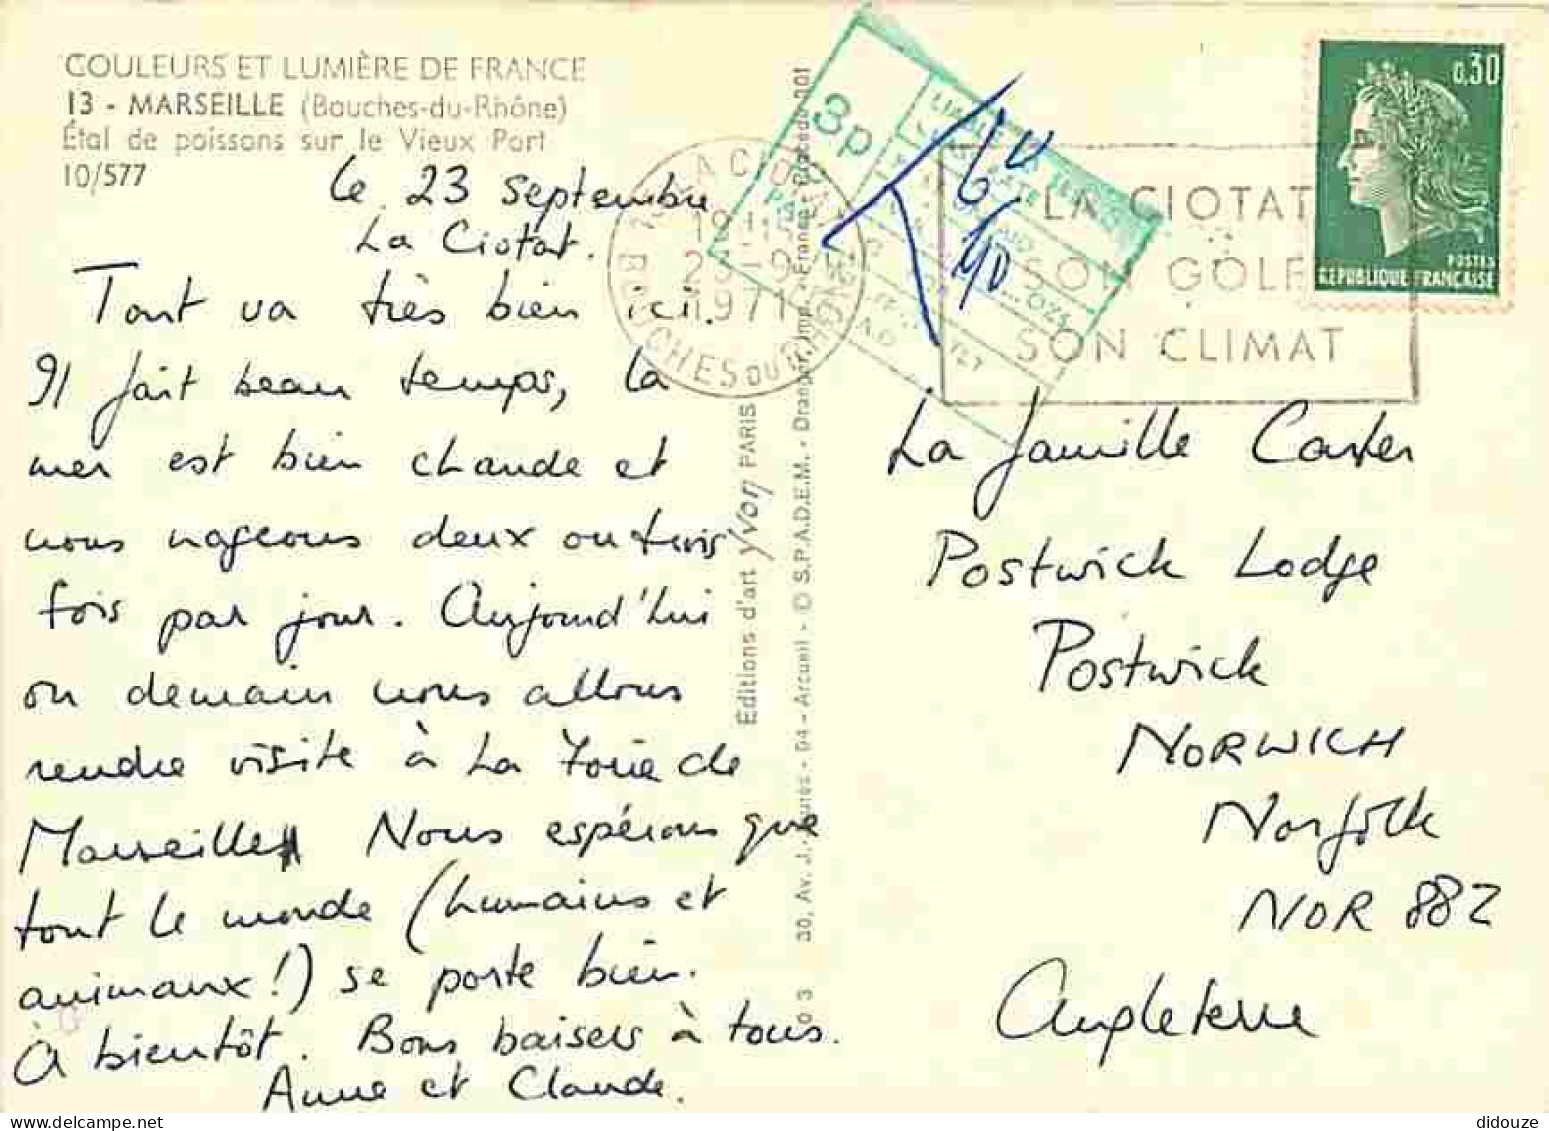 COULEURS ET LUMIÈRE DE FRANCE
13 - MARSEILLE (Bouches-du-Rhône)
Étal de poissons sur le Vieux Port
10/577
Le 23 septembre
La Ciotat.
Tout va très bien ici.
Il fait beau temps, la
mer est bien chaude et
nous nageons deux ou trois
fois par jour. Aujourd'hui
ou demain nous allons
rendre visite à La Foire de
Marseille. Nous espérons que
tout le monde (humains et
animaux!) se porte bien.
À bientôt. Bons baisers à tous.
Anne et Claude.
Editions d'art yvon PARIS
30, Av. J.-Jaurès - 94 - Arcueil - © S.P.A.D.E.M. - Draeger, Imp.
3p
LA CIOTAT
SON GOLFE
SON CLIMAT
LA CIOTAT
23-9
1971
BOUCHES DU RHONE
0,30
POSTES
REPUBLIQUE FRANÇAISE
La famille Carter
Postwick Lodge
Postwick
NORWICH
Norfolk
NOR 88Z
Angleterre
didouze